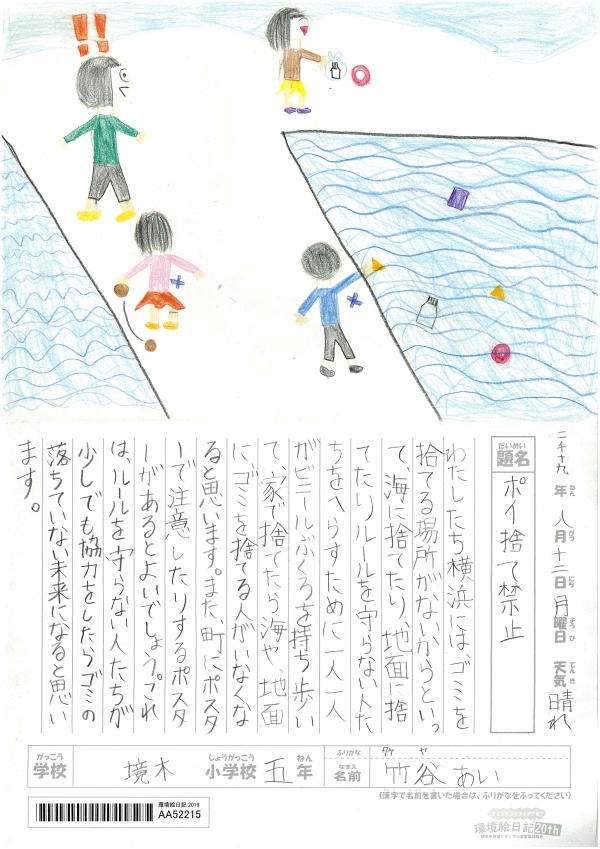 二千十九年八月十二日月曜日 天気晴れ
ねん
がつ
にち
ようび
てんき
だいめい
題名
ポイ捨て禁止
わたしたち横浜には、ゴミを
捨てる場所がないからといっ
て、海に捨てたり、地面に捨
てたりルールを守らない人た
ちをへらすために一人一人
がビニールぶくろを持ち歩い
て、家で捨てたら海や、地面
にゴミを捨てる人がいなくな
ると思います。また、町にポスタ
ーで注意したりするポスタ
ーがあるとよいでしょう。これ
は、ルールを守らない人たちが
少しでも協力をしたらゴミの
落ちていない未来になると思い
ます。
がっこう
学校
境木
しょうがっこう
小学校
五
ねん
年
ふりがな
タケ ヤ
なまえ
名前
竹谷 あい
(漢字で名前を書いた場合は、ふりがなをふってください)
環境絵日記 2019
AA52215
環境絵日記20th